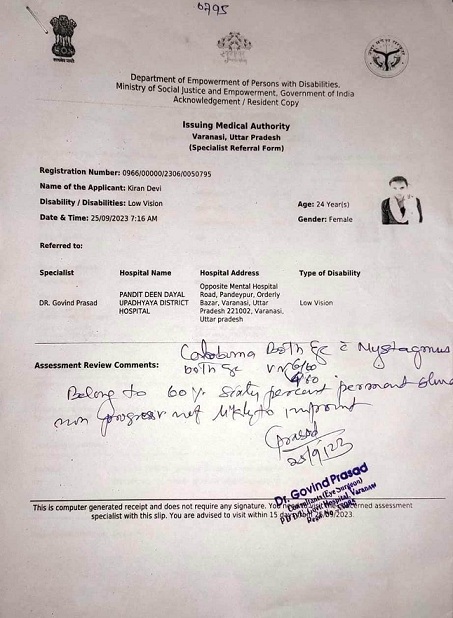 0795
Department of Empowerment of Persons with Disabilities,
Ministry of Social Justice and Empowerment, Government of India
Acknowledgement / Resident Copy
Issuing Medical Authority
Varanasi, Uttar Pradesh
(Specialist Referral Form)
Registration Number: 0966/00000/2306/0050795
Name of the Applicant: Kiran Devi
Disability / Disabilities: Low Vision
Age: 24 Year(s)
Date & Time: 25/09/2023 7:16 AM
Gender: Female
Referred to:
Specialist Hospital Name Hospital Address Type of Disability
DR. Govind Prasad
PANDIT DEEN DAYAL
UPADHYAYA DISTRICT
HOSPITAL
Opposite Mental Hospital
Road, Pandeypur, Orderly
Bazar, Varanasi, Uttar
Pradesh 221002, Varanasi,
Uttar pradesh
Low Vision
Assessment Review Comments:
Coloboma Both Eye c Nystagmus
both Eye Vn 6/60
6/60
Belong to 60% sixty percent permanent
non progressive not likely to
Prasad
25/9/23
Dr. Govind Prasad
Consultant (Eye Surgeon)
Hospital, Varanasi
This is computer generated receipt and does not require any signature. You concerned assessment
specialist with this slip. You are advised to visit within 15